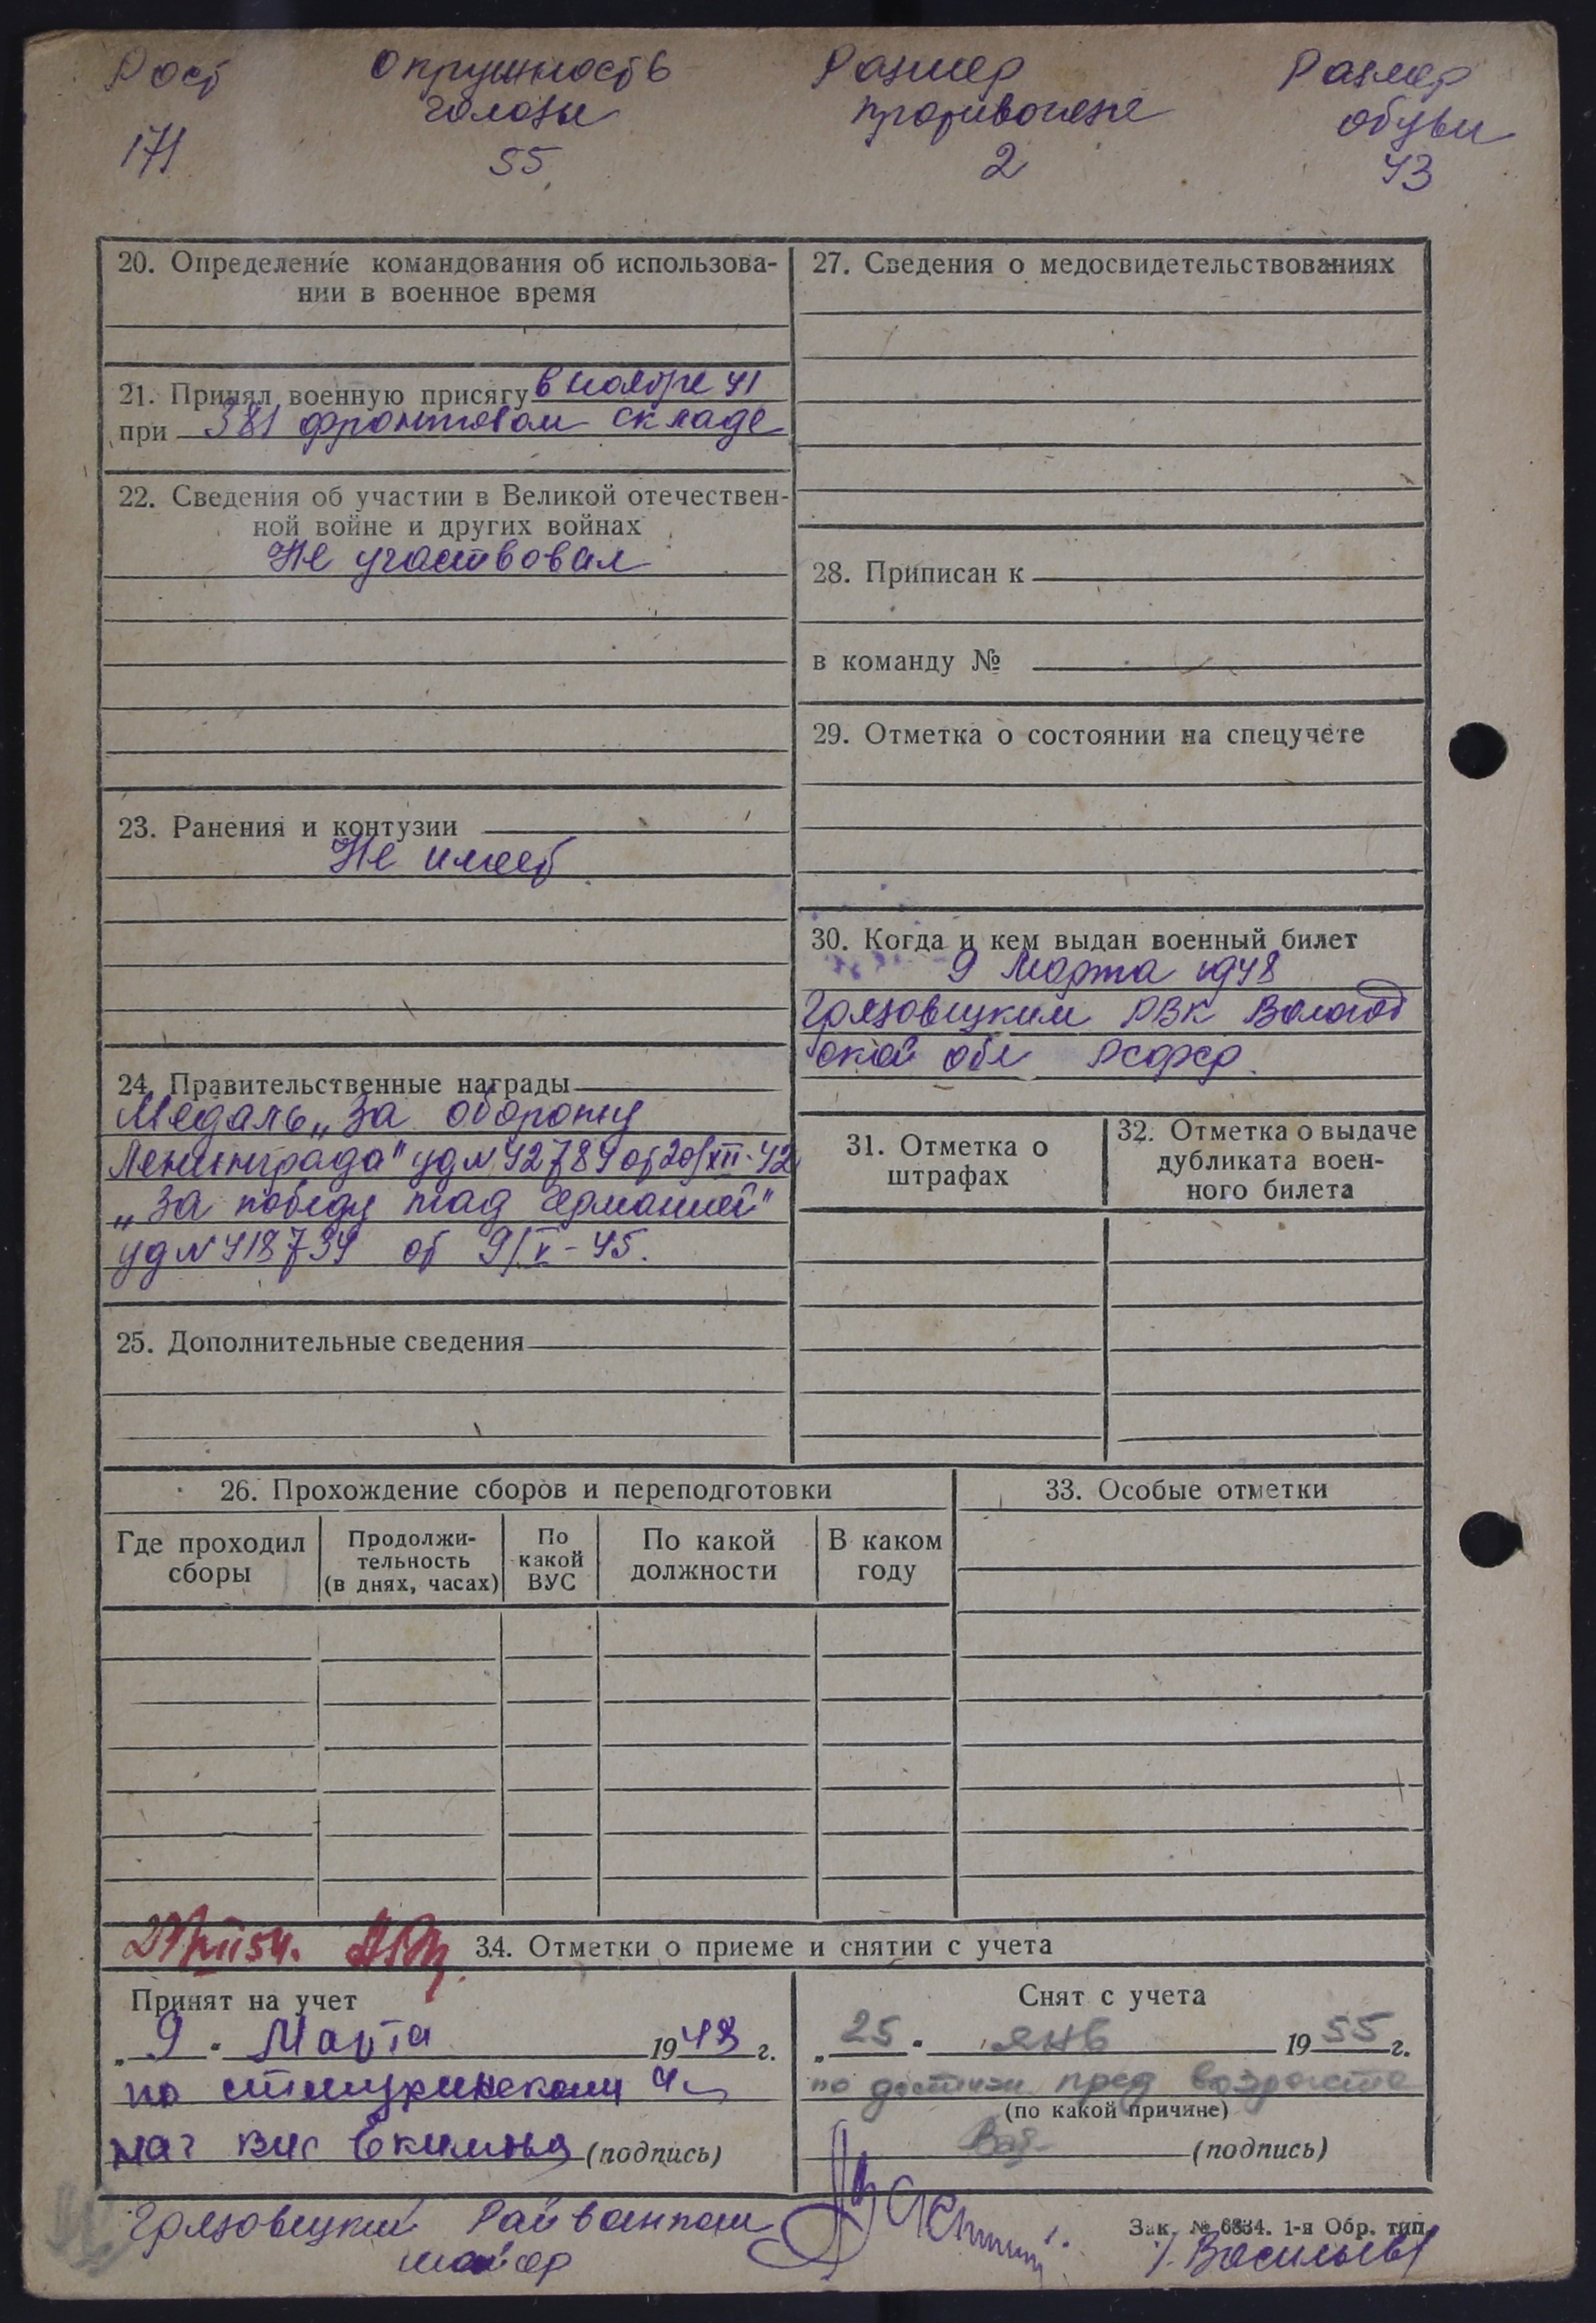 Рост Окружность Размер Размер
головы противогаза обуви
171 55 2 43
20. Определение командования об использова-
нии в военное время
21. Принял военную присягу в ноябре 41
при 381 фронтовом складе
22. Сведения об участии в Великой отечествен-
ной войне и других войнах
Не участвовал
23. Ранения и контузии
Не имеет
24. Правительственные награды
Медаль „За оборону
Ленинграда" уд N 42789 от 20/XII-42
„За победу над Германией"
уд N 418734 от 9/V-45.
25. Дополнительные сведения
27. Сведения о медосвидетельствованиях
28. Приписан к
в команду №
29. Отметка о состоянии на спецучёте
30. Когда и кем выдан военный билет
9 Марта 1948
Грязовецким РВК Вологод
ской обл РСФСР.
31. Отметка о
штрафах
32. Отметка о выдаче
дубликата воен-
ного билета
26. Прохождение сборов и переподготовки
Где проходил
сборы
Продолжи-
тельность
(в днях, часах)
По
какой
ВУС
По какой
должности
В каком
году
33. Особые отметки
34. Отметки о приеме и снятии с учета
Принят на учет
„ 9 " Марта 1948 г.
по
нач ВУС (подпись)
Снят с учета
„ 25 " янв 1955 г.
по достиж пред возраста
(по какой причине)
(подпись)
Грязовецкий Райвоенком
майор
Зак. № 6834. 1-я Обр. тип.
Васильев